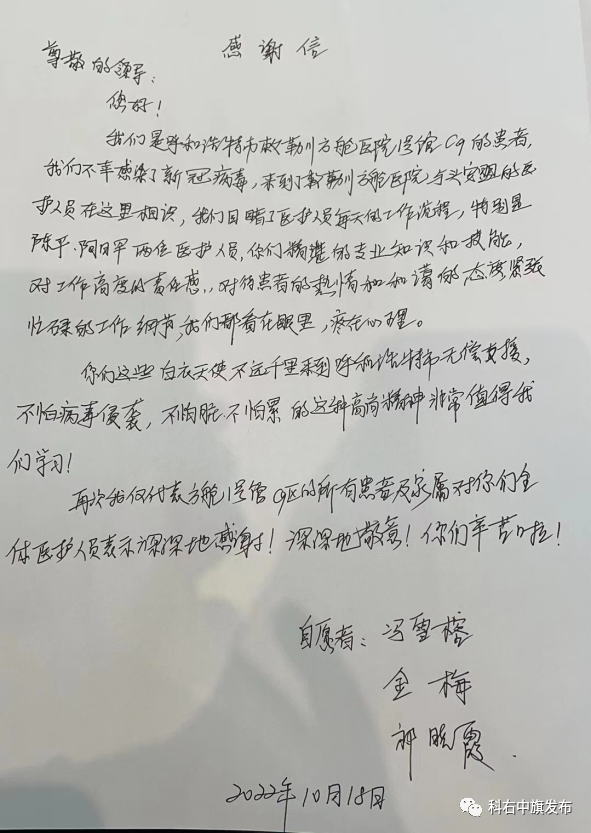 感谢信
尊敬的领导：
您好！
我们是呼和浩特市敕勒川方舱医院湿馆C9的患者，
我们不幸感染了新冠病毒，来到了敕勒川方舱医院与兴安盟的医
护人员在这里相识，我们目睹了医护人员每天的工作流程，特别是
陈平·阿日罕两位医护人员，你们精湛的专业知识和技能，
对工作高度的责任感，对待患者的热情和和蔼的态度紧张
忙碌的工作细节，我们都看在眼里，疼在心里。
你们这些白衣天使不远千里来到呼和浩特市无偿支援，
不怕病毒侵袭，不怕脏不怕累的这种高尚精神非常值得我
们学习！
再次我仅代表方舱湿馆C9区的所有患者及家属对你们全
体医护人员表示深深地感谢！深深地敬意！你们辛苦啦！
自愿者：冯雪榕
金梅
祁晓霞
2022年10月18日
科右中旗发布